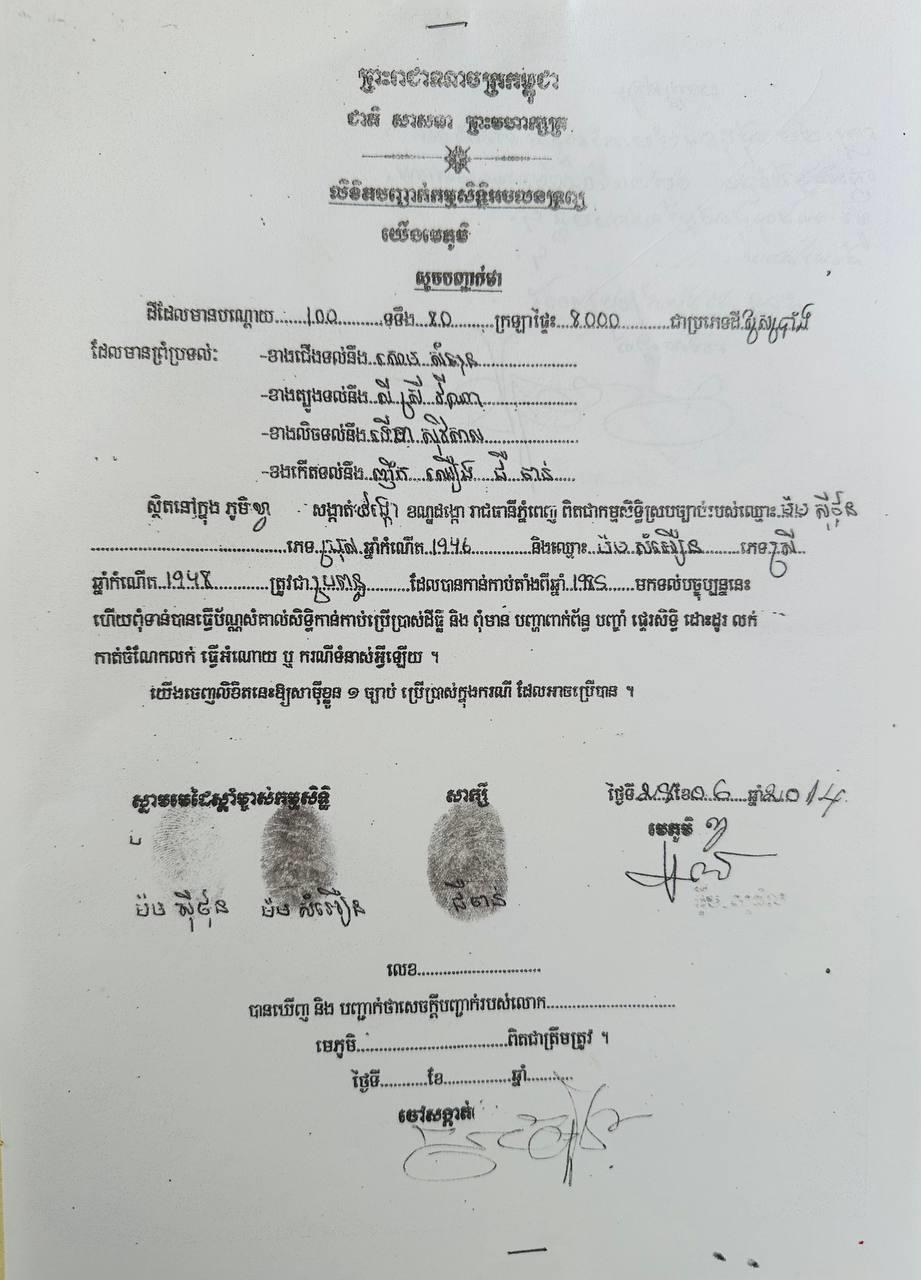 ព្រះរាជាណាចក្រកម្ពុជា
ជាតិ សាសនា ព្រះមហាក្សត្រ
លិខិតបញ្ជាក់កម្មសិទ្ធិអចលនទ្រព្យ
យើងមេភូមិ
សូមបញ្ជាក់ថា
ដីដែលមានបណ្តោយ........១០០..........ទទឹង...៨០........ក្រឡាផ្ទៃ...៨.០០០.......ជាប្រភេទដី
ដែលមានព្រំប្រទល់ៈ -ខាងជើងទល់នឹង
-ខាងត្បូងទល់នឹង..សី ស្រី វីណា
-ខាងលិចទល់នឹង
-ខងកើតទល់នឹង
ស្ថិតនៅក្នុង ភូមិ សង្កាត់ ខណ្ឌដង្កោ រាជធានីភ្នំពេញ ពិតជាកម្មសិទ្ធិស្របច្បាប់របស់ឈ្មោះ..ម៉ម ស៊ីថុន
ភេទ..ប្រុស..ឆ្នាំកំណើត..១៩៤៦............និងឈ្មោះ...ម៉ម សំអឿន........ភេទ..ស្រី
ឆ្នាំកំណើត..១៩៤៨..........ត្រូវជា ដែលបានកាន់កាប់តាំងពីឆ្នាំ មកទល់បច្ចុប្បន្ននេះ
ហើយពុំទាន់បានធ្វើប័ណ្ណសំគាល់សិទ្ធិកាន់កាប់ប្រើប្រាស់ដីធ្លី និង ពុំមាន បញ្ហាពាក់ព័ន្ធ បញ្ចាំ ផ្ទេរសិទ្ធិ ដោះដូរ លក់
កាត់ចំណែកលក់ ធ្វើអំណោយ ឬ ករណីទំនាស់អ្វីឡើយ ។
យើងចេញលិខិតនេះឱ្យសាម៉ីខ្លួន ១ ច្បាប់ ប្រើប្រាស់ក្នុងករណី ដែលអាចប្រើបាន ។
ស្នាមមេដៃស្តាំម្ចាស់កម្មសិទ្ធិ សាក្សី ថ្ងៃទី ខែ..០៦....ឆ្នាំ២០១៤
មេភូមិ
ម៉ម ស៊ីថុន ម៉ម សំអឿន
លេខ............................
បានឃើញ និង បញ្ជាក់ថាសេចក្តីបញ្ជាក់របស់លោក.............................
មេភូមិ..................................ពិតជាត្រឹមត្រូវ ។
ថ្ងៃទី...........ខែ...............ឆ្នាំ..........
ចៅសង្កាត់